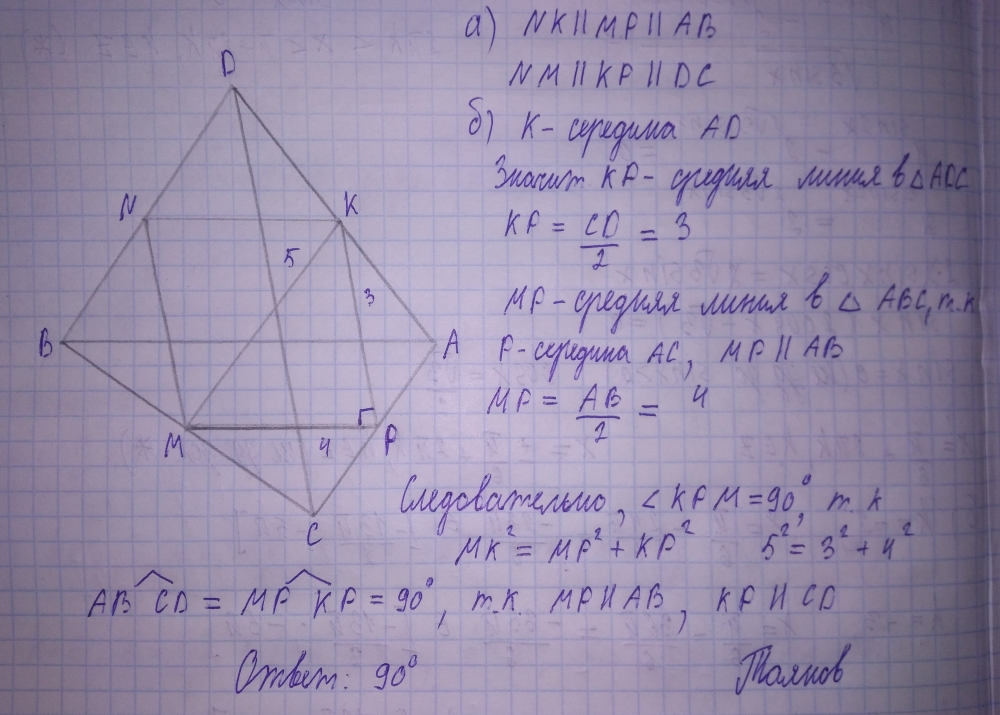 а) NK || MP || AB
NM || KP || DC
б) K - середина AD
Значит KP - средняя линия в △ADC
KP = CD/2 = 3
MP - средняя линия в △ ABC, т.к
P - середина AC, MP || AB
MP = AB/2 = 4
Следовательно, ∠KPM = 90°, т.к
MK² = MP² + KP² 5² = 3² + 4²
AB ^ CD = MP ^ KP = 90°, т.к. MP || AB, KP || CD
Ответ: 90°
D
N
K
5
3
B
A
M
4
P
C